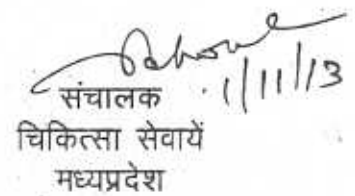 1/11/13
संचालक
चिकित्सा सेवायें
मध्यप्रदेश